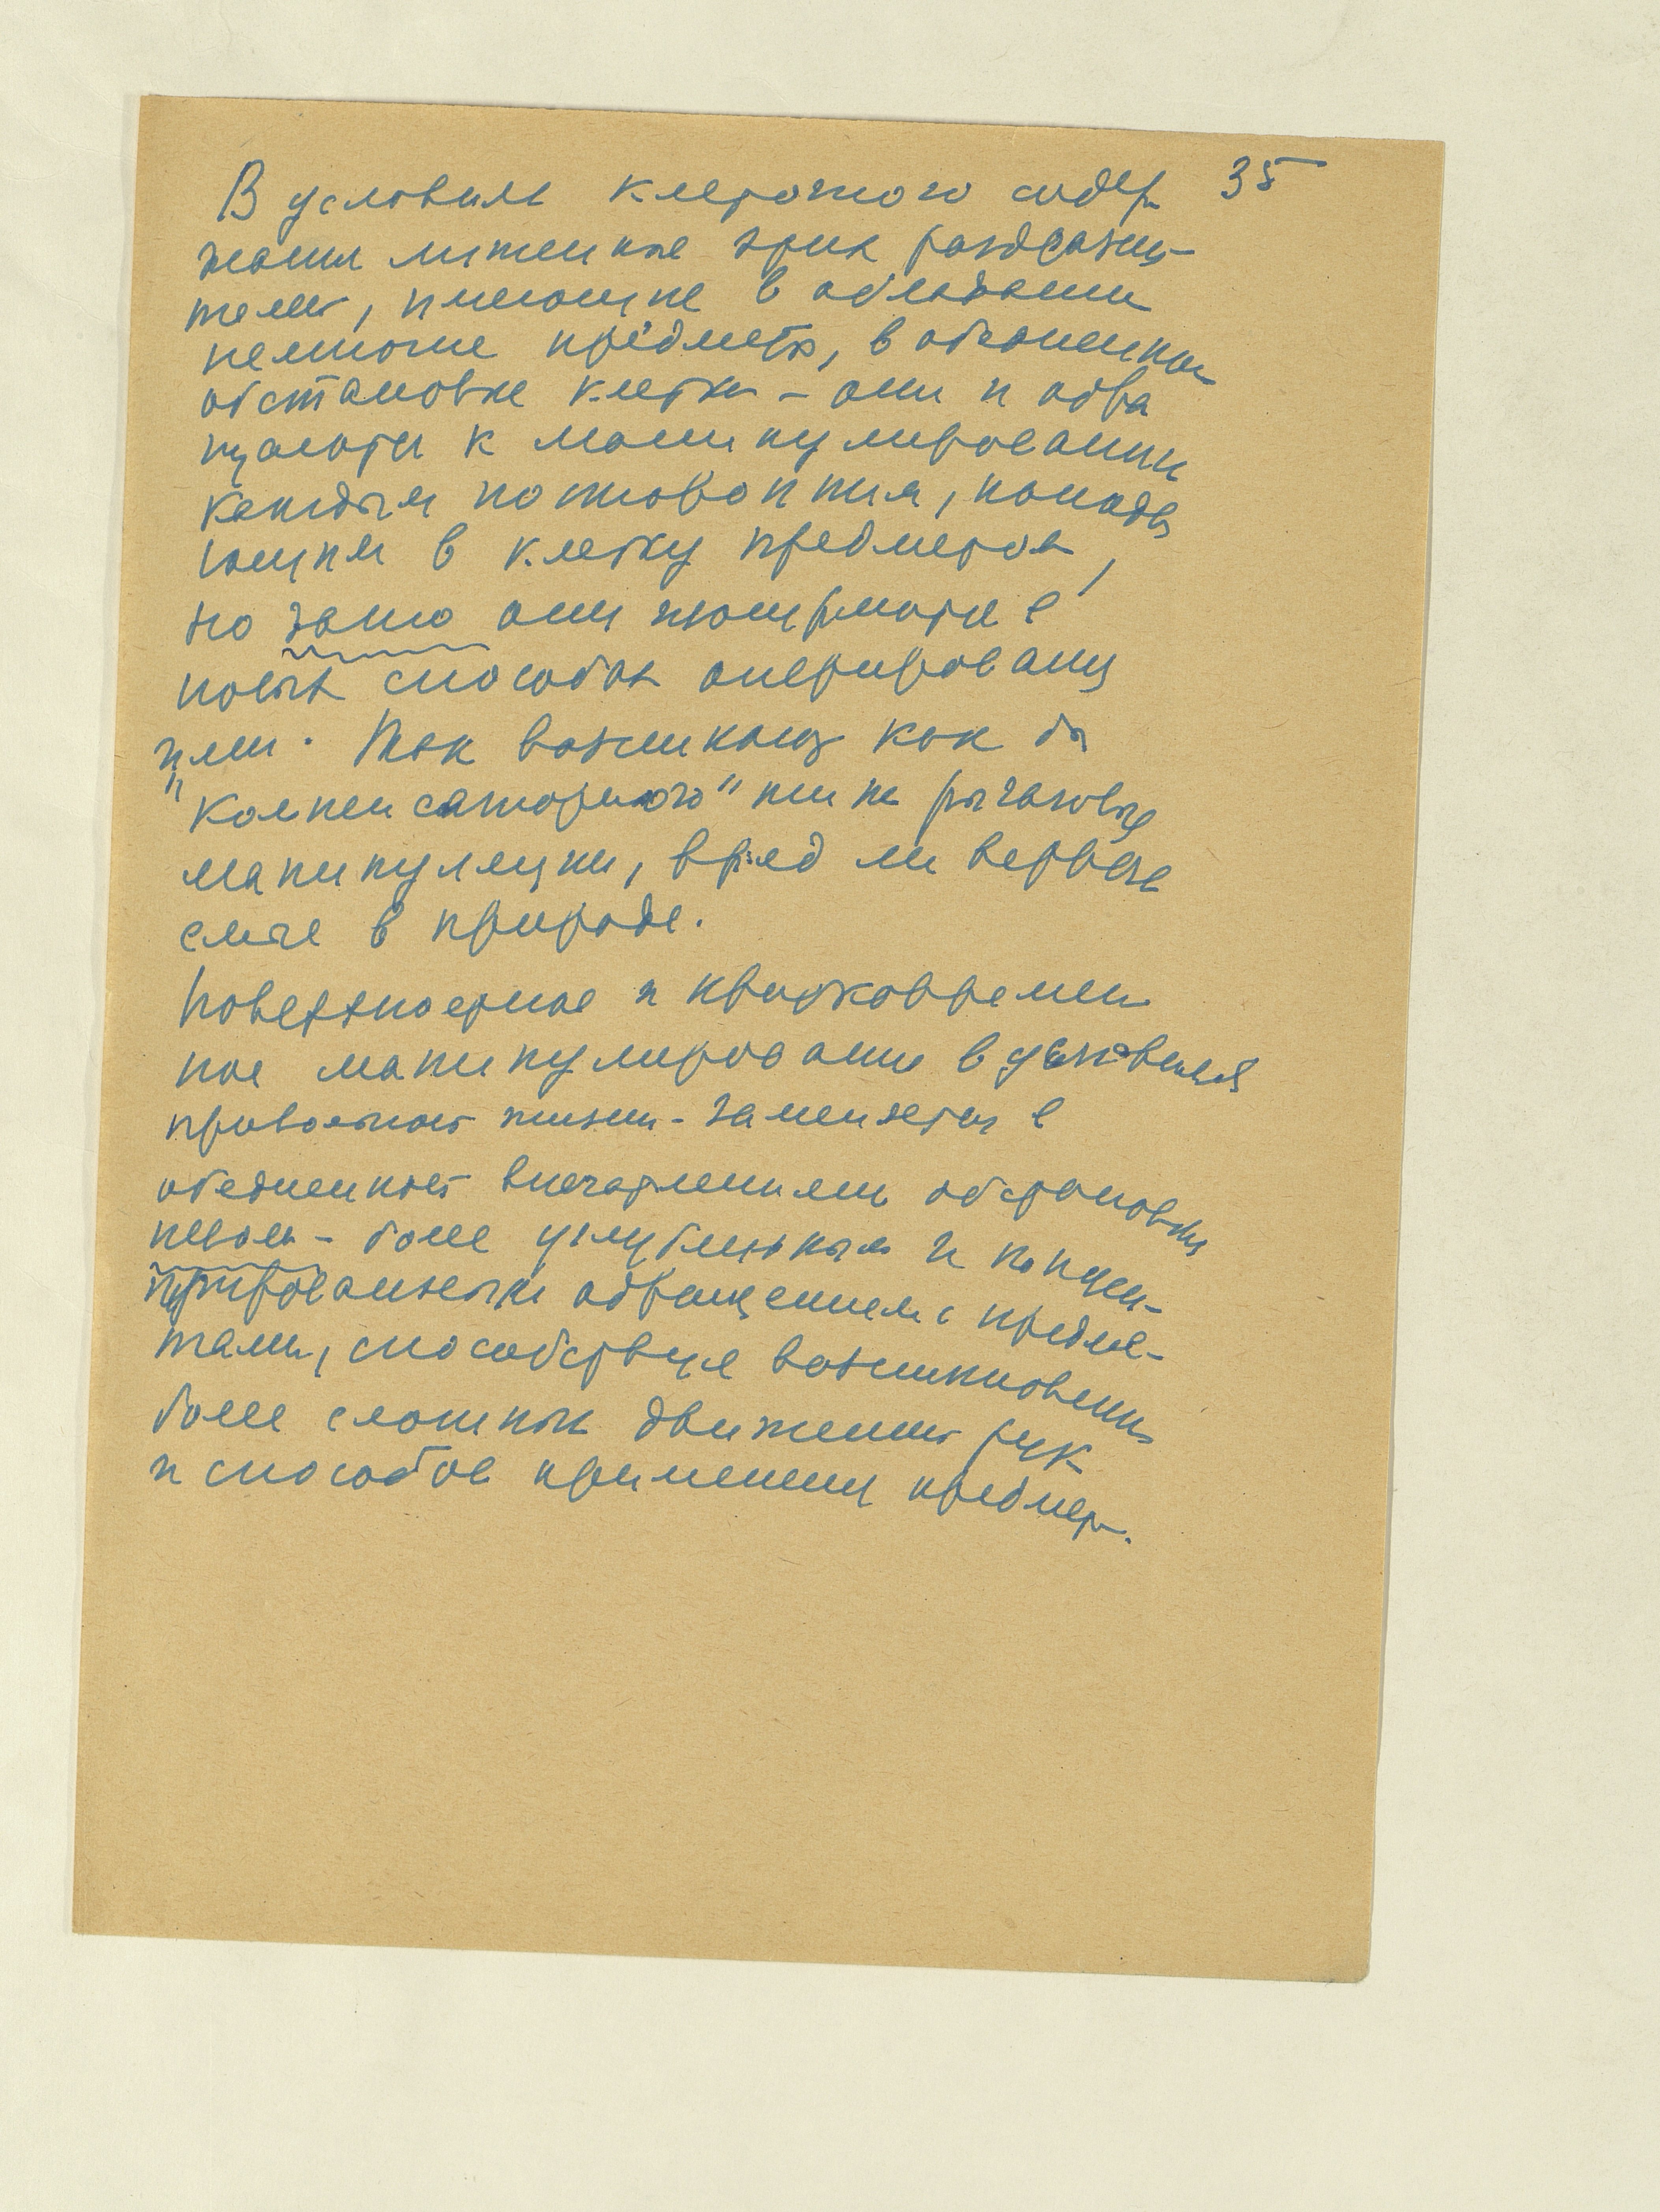 В условиях клеточного содер 35
жания лишенные этих раздражи-
телей, имеющие в обладании
немногие предметы, в обедненной
обстановке клетки – они и обра
щаются к манипулированию
каждым посторонним, попада
ющим в клетку предметом,
но зато они изощряются в
новых способах оперирования
ими. Так возникают как бы
"компенсаторного" типа рычаговые
манипуляции, вряд ли
в природе.
Поверхностное и кратковремен
ное манипулирование в условиях
привольной жизни – заменяется в
обедненной впечатлениями обстановке
неволи – более углубленным и концен-
трированным обращением с предме-
тами, способствуя возникновению
более сложных движений рук
и способов применения предмет.